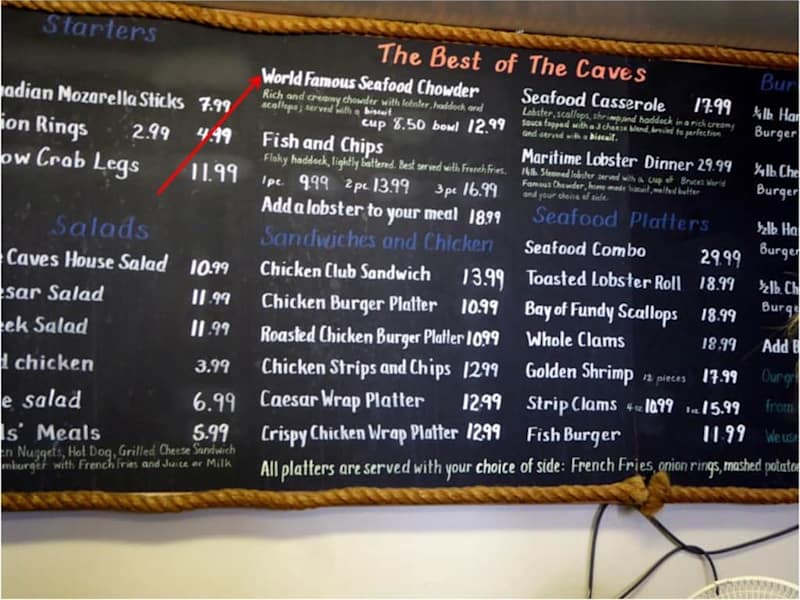 Starters
adian Mozarella Sticks 7.99
ion Rings 2.99 4.99
ow Crab Legs 11.99
Salads
Caves House Salad 10.99
esar Salad 11.99
eek Salad 11.99
d chicken 3.99
e salad 6.99
ls' Meals 5.99
en Nuggets, Hot Dog, Grilled Cheese Sandwich
mburger with French Fries and Juice or Milk
The Best of The Caves
World Famous Seafood Chowder
Rich and creamy chowder with lobster, haddock and
scallops; served with a biscuit
cup 8.50 bowl 12.99
Fish and Chips
Flaky haddock, lightly battered. Best served with French fries.
1 pc. 9.99 2 pc 13.99 3 pc 16.99
Add a lobster to your meal 18.99
Sandwiches and Chicken
Chicken Club Sandwich 13.99
Chicken Burger Platter 10.99
Roasted Chicken Burger Platter 10.99
Chicken Strips and Chips 12.99
Caesar Wrap Platter 12.99
Crispy Chicken Wrap Platter 12.99
Seafood Casserole 17.99
Lobster, scallops, shrimp, and haddock in a rich creamy
sauce topped with a 3 cheese blend, broiled to perfection
and served with a biscuit.
Maritime Lobster Dinner 29.99
1 lb. Steamed lobster served with a cup of Bruces World
Famous Chowder, home made biscuit, melted butter
and your choice of side.
Seafood Platters
Seafood Combo 29.99
Toasted Lobster Roll 18.99
Bay of Fundy Scallops 18.99
Whole Clams 18.99
Golden Shrimp 12 pieces 17.99
Strip Clams 4 oz 10.99 7 oz. 15.99
Fish Burger 11.99
All platters are served with your choice of side: French Fries, onion rings, mashed potato
Bur
¼lb Ha
Burger
¼lb Che
Burger
½lb Ha
Burger
½lb. Ch
Burge
Add B
Our gr
from
We us